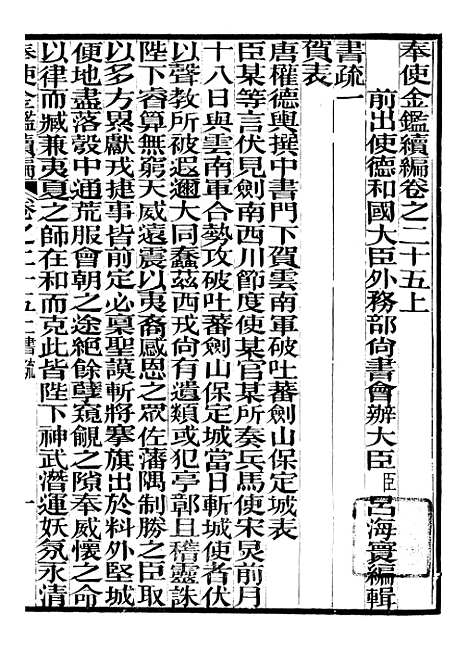 奉使金鑑續編卷之二十五上
前出使德和國大臣外務部尙書會辦大臣臣呂海寰編輯
書疏一
賀表
唐權德輿撰中書門下賀雲南軍破吐蕃劍山保定城表
臣某等言伏見劍南西川節度使某官某所奏兵馬使宋炅前月
十八日與雲南軍合勢攻破吐蕃劍山保定城當日斬城使者伏
以聲教所被遐邇大同蠢茲西戎尙有遺類或犯亭鄣且稽靈誅
陛下睿算無窮天威遠震以夷裔感恩之眾佐藩隅制勝之臣取
以多方累獻戎捷事皆前定必稟聖謨斬將搴旗出於料外堅城
便地盡落彀中通荒服會朝之途絕餘孽窺覦之隙奉威懷之命
以律而臧兼夷夏之師在和而克此皆陛下神武潛運妖氛永清
奉使金鑑續編 卷之二十五上書疏 一